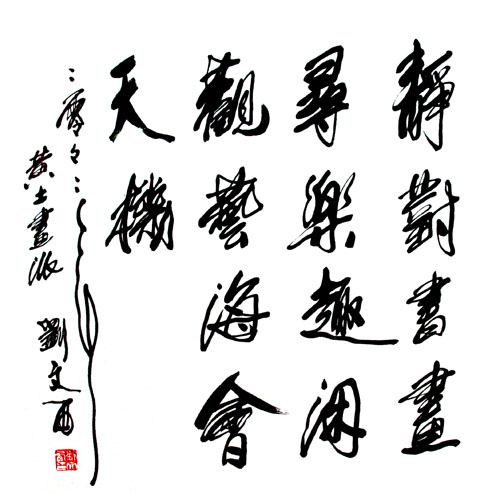 靜對書畫
尋樂趣閑
觀藝海會
天機
二零々二年
黄土畫派
劉文西